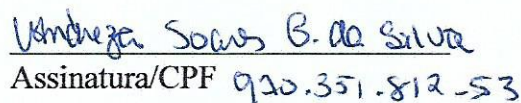 Andreza Soares B. da Silva
Assinatura/CPF 920.351.812-53